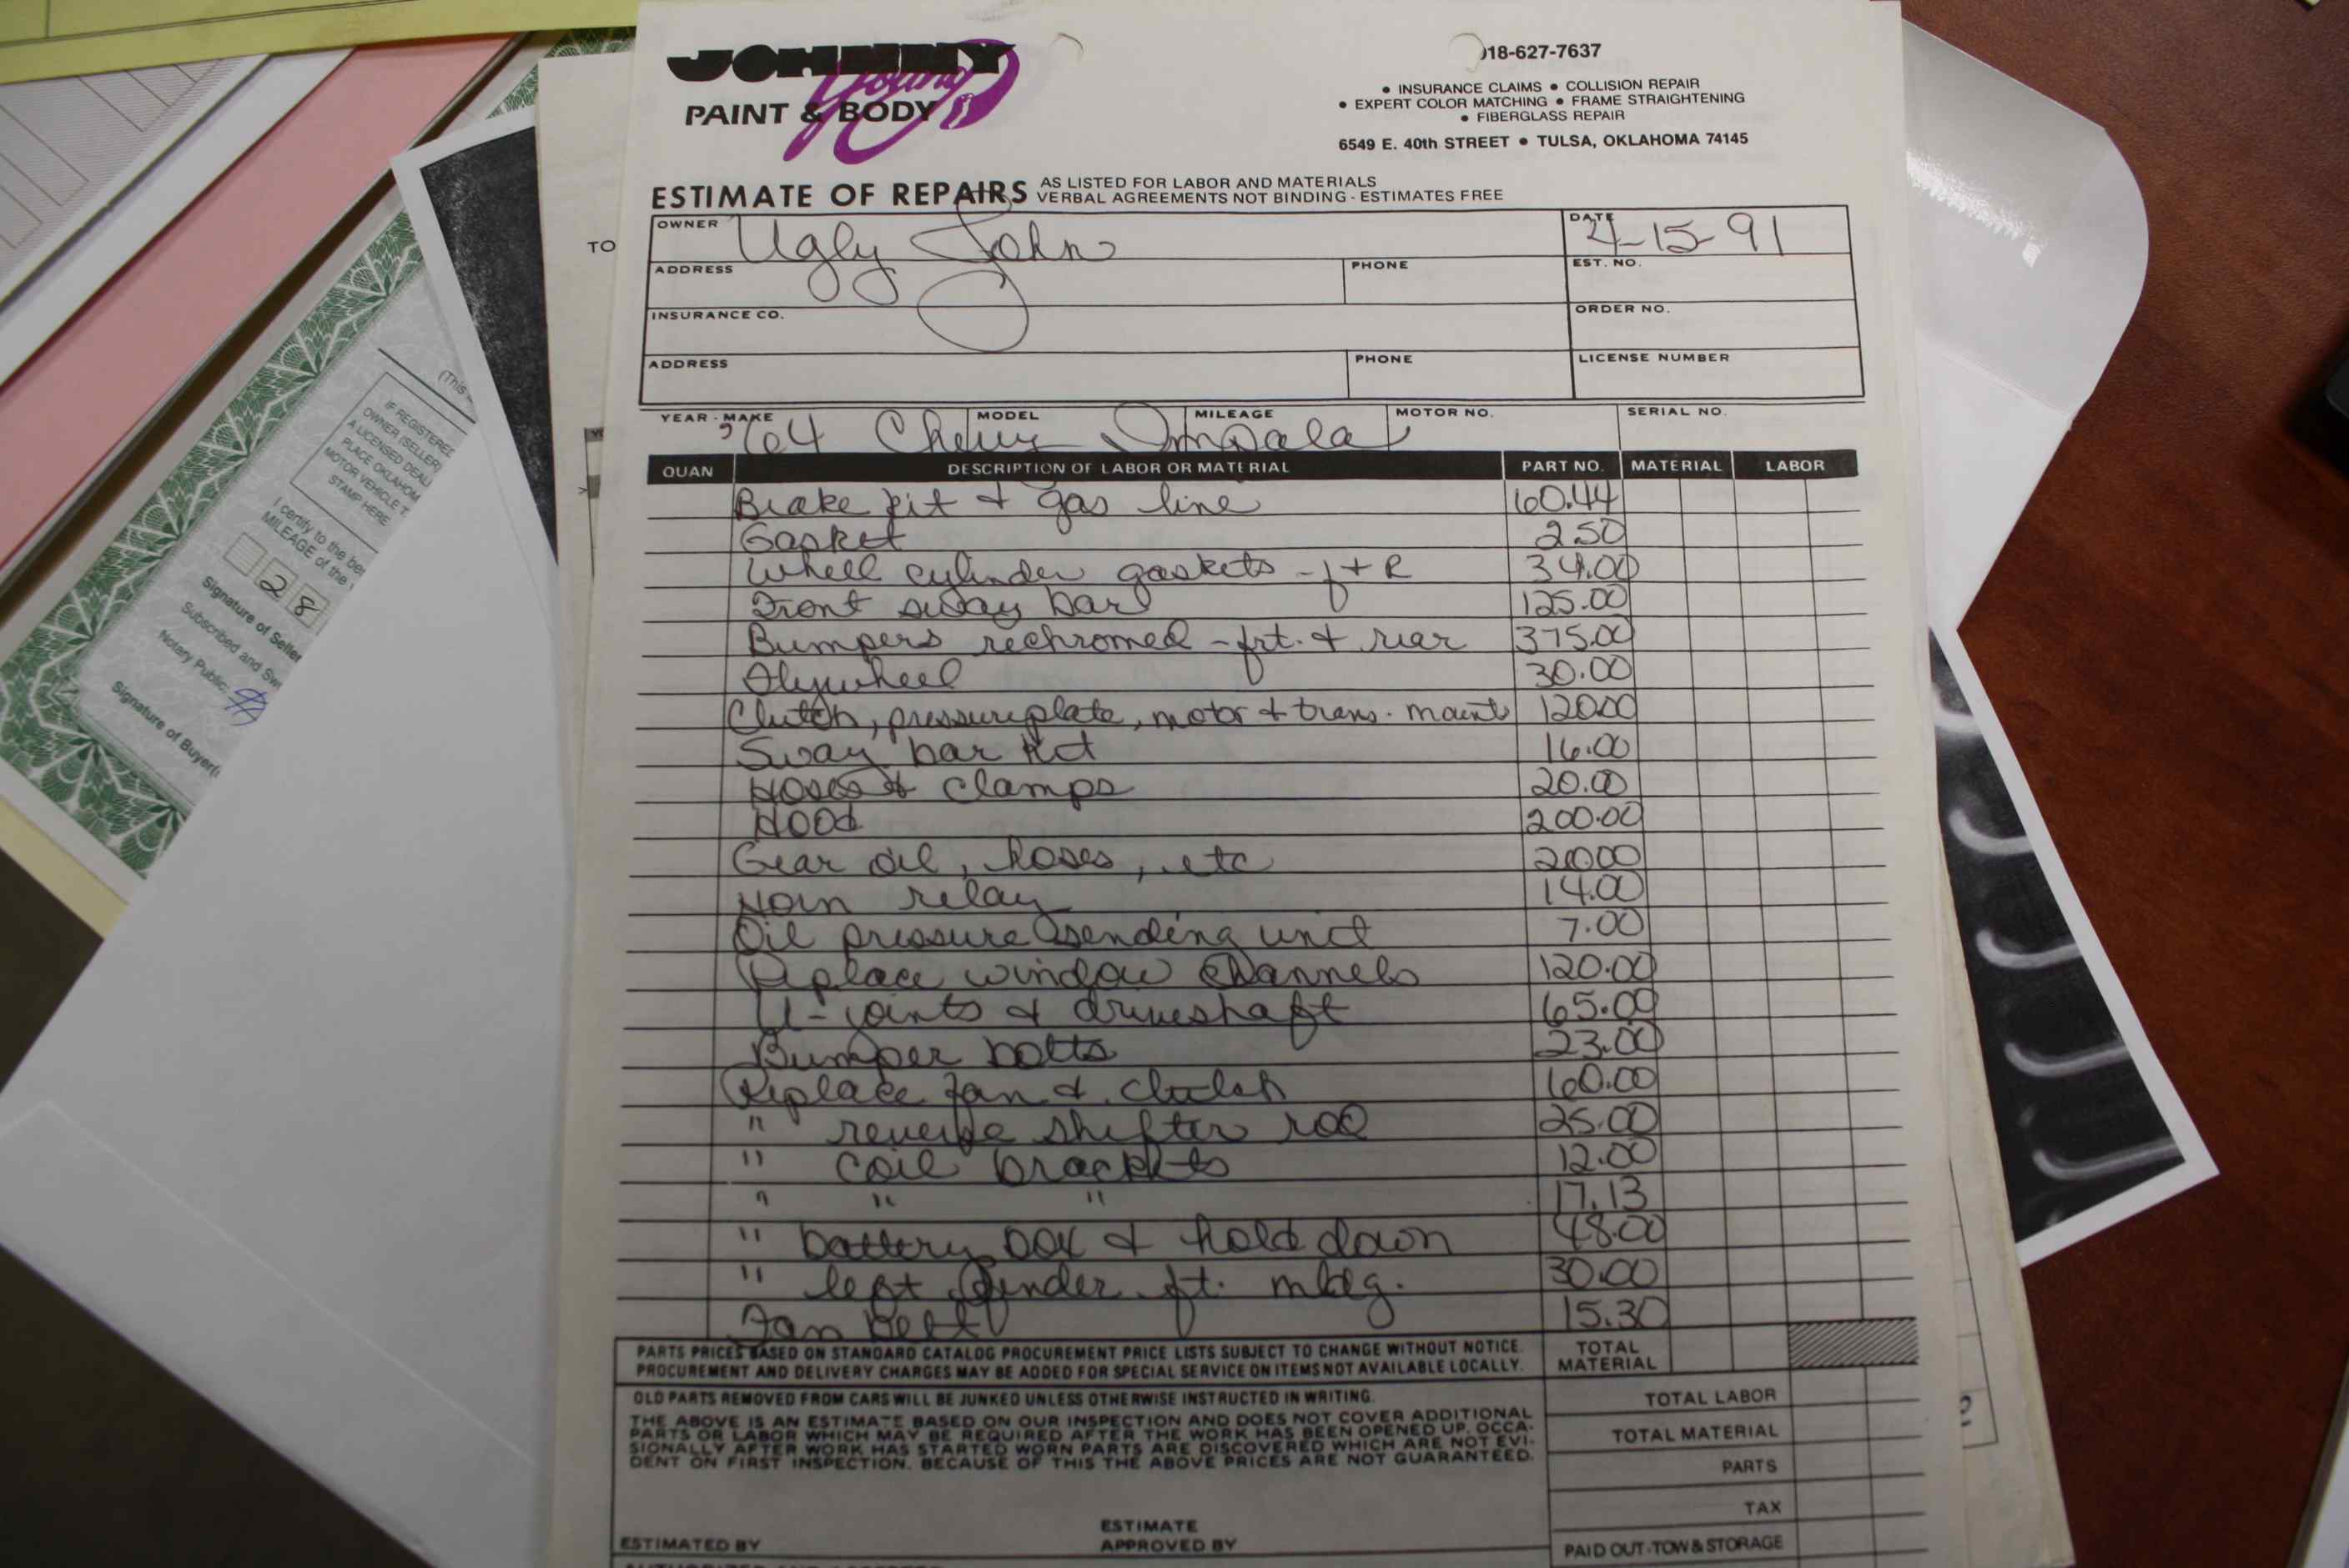 JOHNNY
Young
PAINT & BODY
918-627-7637
• INSURANCE CLAIMS • COLLISION REPAIR
• EXPERT COLOR MATCHING • FRAME STRAIGHTENING
• FIBERGLASS REPAIR
6549 E. 40th STREET • TULSA, OKLAHOMA 74145
ESTIMATE OF REPAIRS AS LISTED FOR LABOR AND MATERIALS
VERBAL AGREEMENTS NOT BINDING - ESTIMATES FREE
TO
OWNER Ugly John DATE 4-15-91
ADDRESS PHONE EST. NO.
INSURANCE CO. ORDER NO.
ADDRESS PHONE LICENSE NUMBER
YEAR - MAKE MODEL MILEAGE MOTOR NO. SERIAL NO.
'64 Chevy Impala
QUAN DESCRIPTION OF LABOR OR MATERIAL PART NO. MATERIAL LABOR
Brake kit + gas line 60.44
Gasket 2.50
Wheel cylinder gaskets - f + R 34.00
Front sway bar 125.00
Bumpers rechromed - frt. + rear 375.00
Flywheel 30.00
Clutch, pressureplate, motor + trans. mount 120.00
Sway bar kit 16.00
Hoses + clamps 20.00
Hood 200.00
Gear oil, hoses, etc 20.00
Horn relay 14.00
Oil pressure sending unit 7.00
Replace window channels 120.00
U-joints + driveshaft 65.00
Bumper bolts 23.00
Replace fan + clutch 60.00
" reverse shifter rod 25.00
" coil brackets 12.00
" " " 17.13
" battery box + hold down 48.00
" left fender ft. mldg. 30.00
Fan belt 15.30
PARTS PRICES BASED ON STANDARD CATALOG PROCUREMENT PRICE LISTS SUBJECT TO CHANGE WITHOUT NOTICE.
PROCUREMENT AND DELIVERY CHARGES MAY BE ADDED FOR SPECIAL SERVICE ON ITEMS NOT AVAILABLE LOCALLY.
TOTAL
MATERIAL
OLD PARTS REMOVED FROM CARS WILL BE JUNKED UNLESS OTHERWISE INSTRUCTED IN WRITING.
THE ABOVE IS AN ESTIMATE BASED ON OUR INSPECTION AND DOES NOT COVER ADDITIONAL
PARTS OR LABOR WHICH MAY BE REQUIRED AFTER THE WORK HAS BEEN OPENED UP. OCCA-
SIONALLY AFTER WORK HAS STARTED WORN PARTS ARE DISCOVERED WHICH ARE NOT EVI-
DENT ON FIRST INSPECTION. BECAUSE OF THIS THE ABOVE PRICES ARE NOT GUARANTEED.
TOTAL LABOR
TOTAL MATERIAL
PARTS
TAX
PAID OUT-TOW & STORAGE
ESTIMATED BY
ESTIMATE
APPROVED BY
(This
IF REGISTERED
OWNER (SELLER)
A LICENSED DEAL
PLACE OKLAHOM
MOTOR VEHICLE T
STAMP HERE
I certify to the be
MILEAGE of the
28
Signature of Seller
Subscribed and Sw
Notary Public
Signature of Buyer(